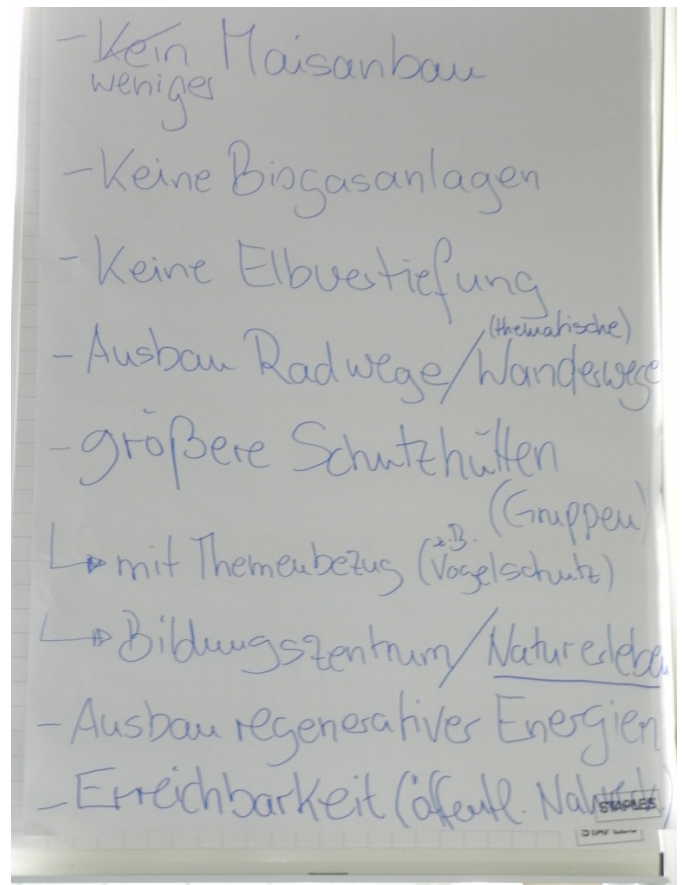 - Kein Maisanbau
weniger
- Keine Biogasanlagen
- Keine Elbvertiefung
(thematische)
- Ausbau Radwege/Wanderwege
- größere Schutzhütten
(Gruppen)
↳ mit Themenbezug (z.B. Vogelschutz)
↳ Bildungszentrum/Naturerleben
- Ausbau regenerativer Energien
- Erreichbarkeit (öffentl.
STAPLES
STAPLES